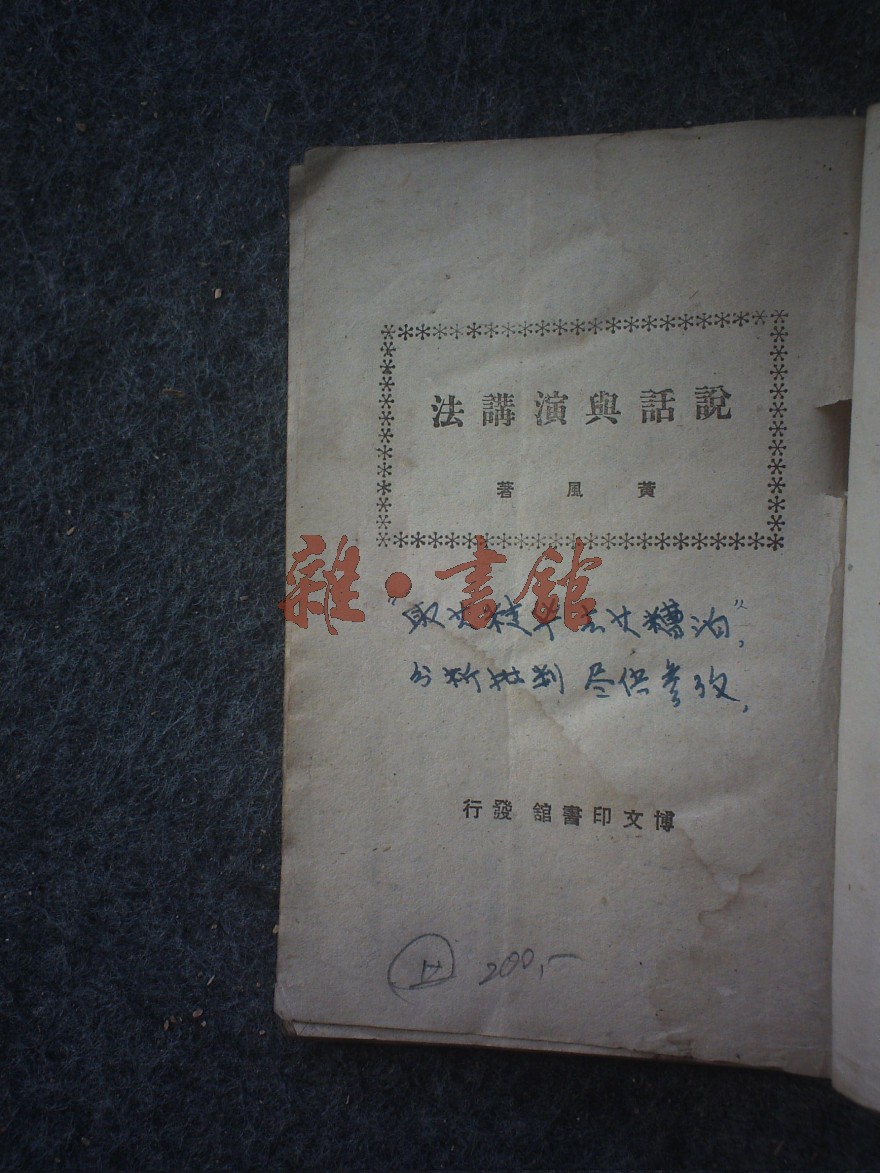 說話與演講法
黃風著
雜·書館
“取其精华去其糟泊”,
分析批判 尽供参攷,
博文印書館 發行
200,-